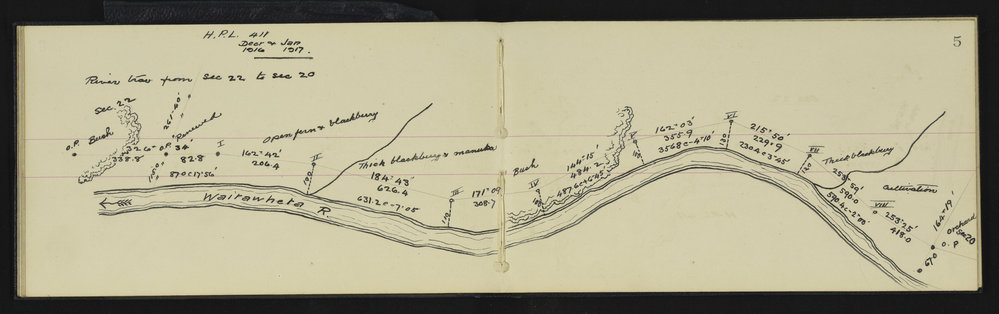 H.P.L. 411
Decr & Jan
1916 1917.
5
River trav from Sec 22 to Sec 20
Sec. 22
Bush
O.P.
326°
34'
338.8
O.P.
261°40'
Renewed
82.8
870c17°56'
I
Open fern & blackberry
162°42'
206.4
II
Thick blackberry & manuka
184°43'
626.4
631.2c-7°05
III
171°09
308.7
Waitawheta R.
Bush
IV
144°15'
484.2
487.6c-6°45
V
162°03'
355.9
356.8c-4°10'
VI
130
215°50'
229.9
230.4c-3°45'
VII
120
Thick blackberry
258°59'
590.0
590.4c-2°03'
Cultivation
VIII
253°25'
418.0
164°19'
Orchard
Sec 20
O.P.
67.0